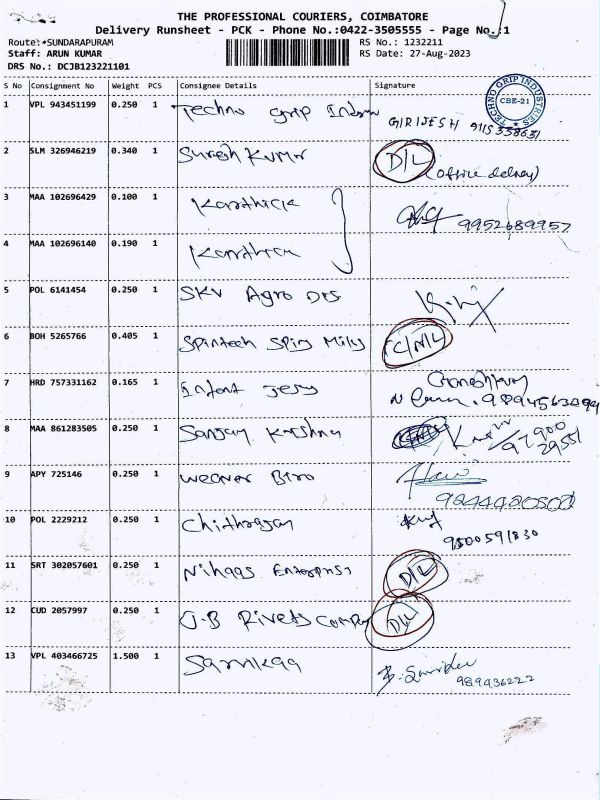 THE PROFESSIONAL COURIERS, COIMBATORE
Delivery Runsheet - PCK - Phone No.:0422-3505555 - Page No.:1
Route:SUNDARAPURAM RS No.: 1232211
Staff: ARUN KUMAR RS Date: 27-Aug-2023
DRS No.: DCJB123221101
S No Consignment No Weight PCS Consignee Details Signature
TECHNO GRIP INDUSTRIES CBE-21
1 VPL 943451199 0.250 1 Techno Grip
GIRIJESH
2 SLM 326946219 0.340 1 Suresh Kumar D/L
(office delivery)
3 MAA 102696429 0.100 1 Karthick
9952689957
4 MAA 102696140 0.190 1 Karthick
5 POL 6141454 0.250 1 SKV Agro
6 BOH 5265766 0.405 1 Spintech Spin Mills C/N/L
7 HRD 757331162 0.165 1 Infant Jesy
8 MAA 861283505 0.250 1 Sanjay Krishna
97900
29551
9 APY 725146 0.250 1
10 POL 2229212 0.250 1 Chithrajan
11 SRT 302057601 0.250 1 Nihaas Enterprises D/L
12 CUD 2057997 0.250 1 J.B Rivets Company D/L
13 VPL 403466725 1.500 1
989936222